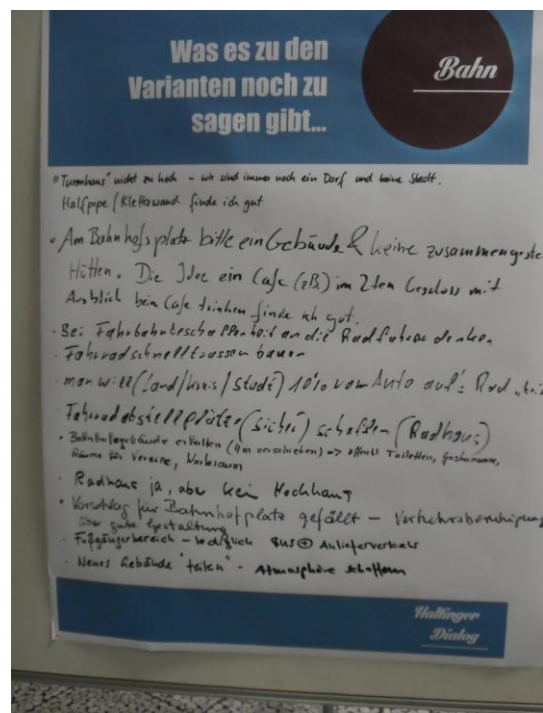 Was es zu den
Varianten noch zu
sagen gibt...
Bahn
"Turmhaus" nicht zu hoch - wir sind immer noch ein Dorf und keine Stadt.
Halfpipe / Kletterwand finde ich gut
• Am Bahnhofsplatz bitte ein Gebäude & keine zusammengeste
Hütten. Die Idee ein Cafe (zB.) im 2ten Geschoss mit
Ausblick beim Cafe trinken finde ich gut.
· Bei Fahrbahnbeschaffenheit an die Radfahrer denken
· Fahrradschnelltrassen bauen
· man will (Land/Kreis/Stadt) 10% vom Auto auf's Rad
· Fahrradabstellplätze (sicher) schaffen (Radhaus)
• Bahnhofsgebäude erhalten (4m verschieben) => öffentl Toiletten, Gastronomie,
Räume für Vereine, Warteraum
· Radhaus ja, aber kein Hochhaus
• Vorschlag für Bahnhofplatz gefällt - Verkehrsberuhigung
über gute Gestaltung
· Fußgängerbereich - lediglich BUS + Anlieferverkehr
· Neues Gebäude "teilen" - Atmosphäre schaffen
Haltinger
Dialog